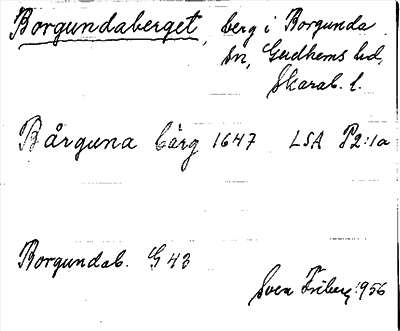 Borgundaberget, berg i Borgunda
sn, Gudhems hd,
Skarab. l.
Bårguna bärg 1647 LSA P2:1a
Borgundab. G 43
Sven Friberg 1956